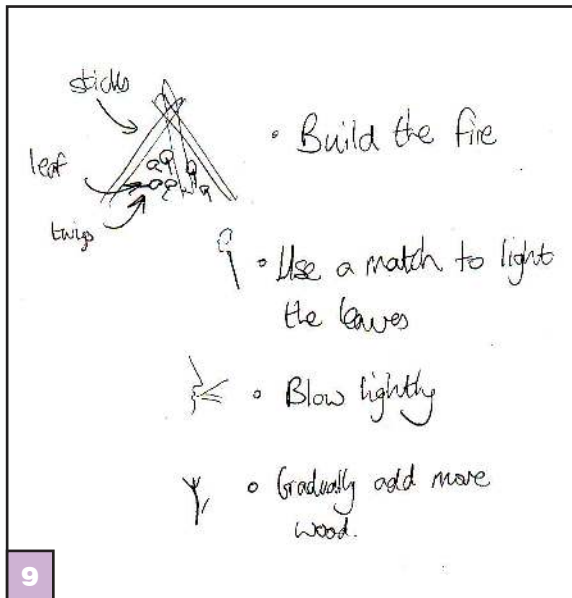 sticks
leaf
twigs
• Build the fire
• Use a match to light
the leaves
• Blow lightly
• Gradually add more
wood.
9